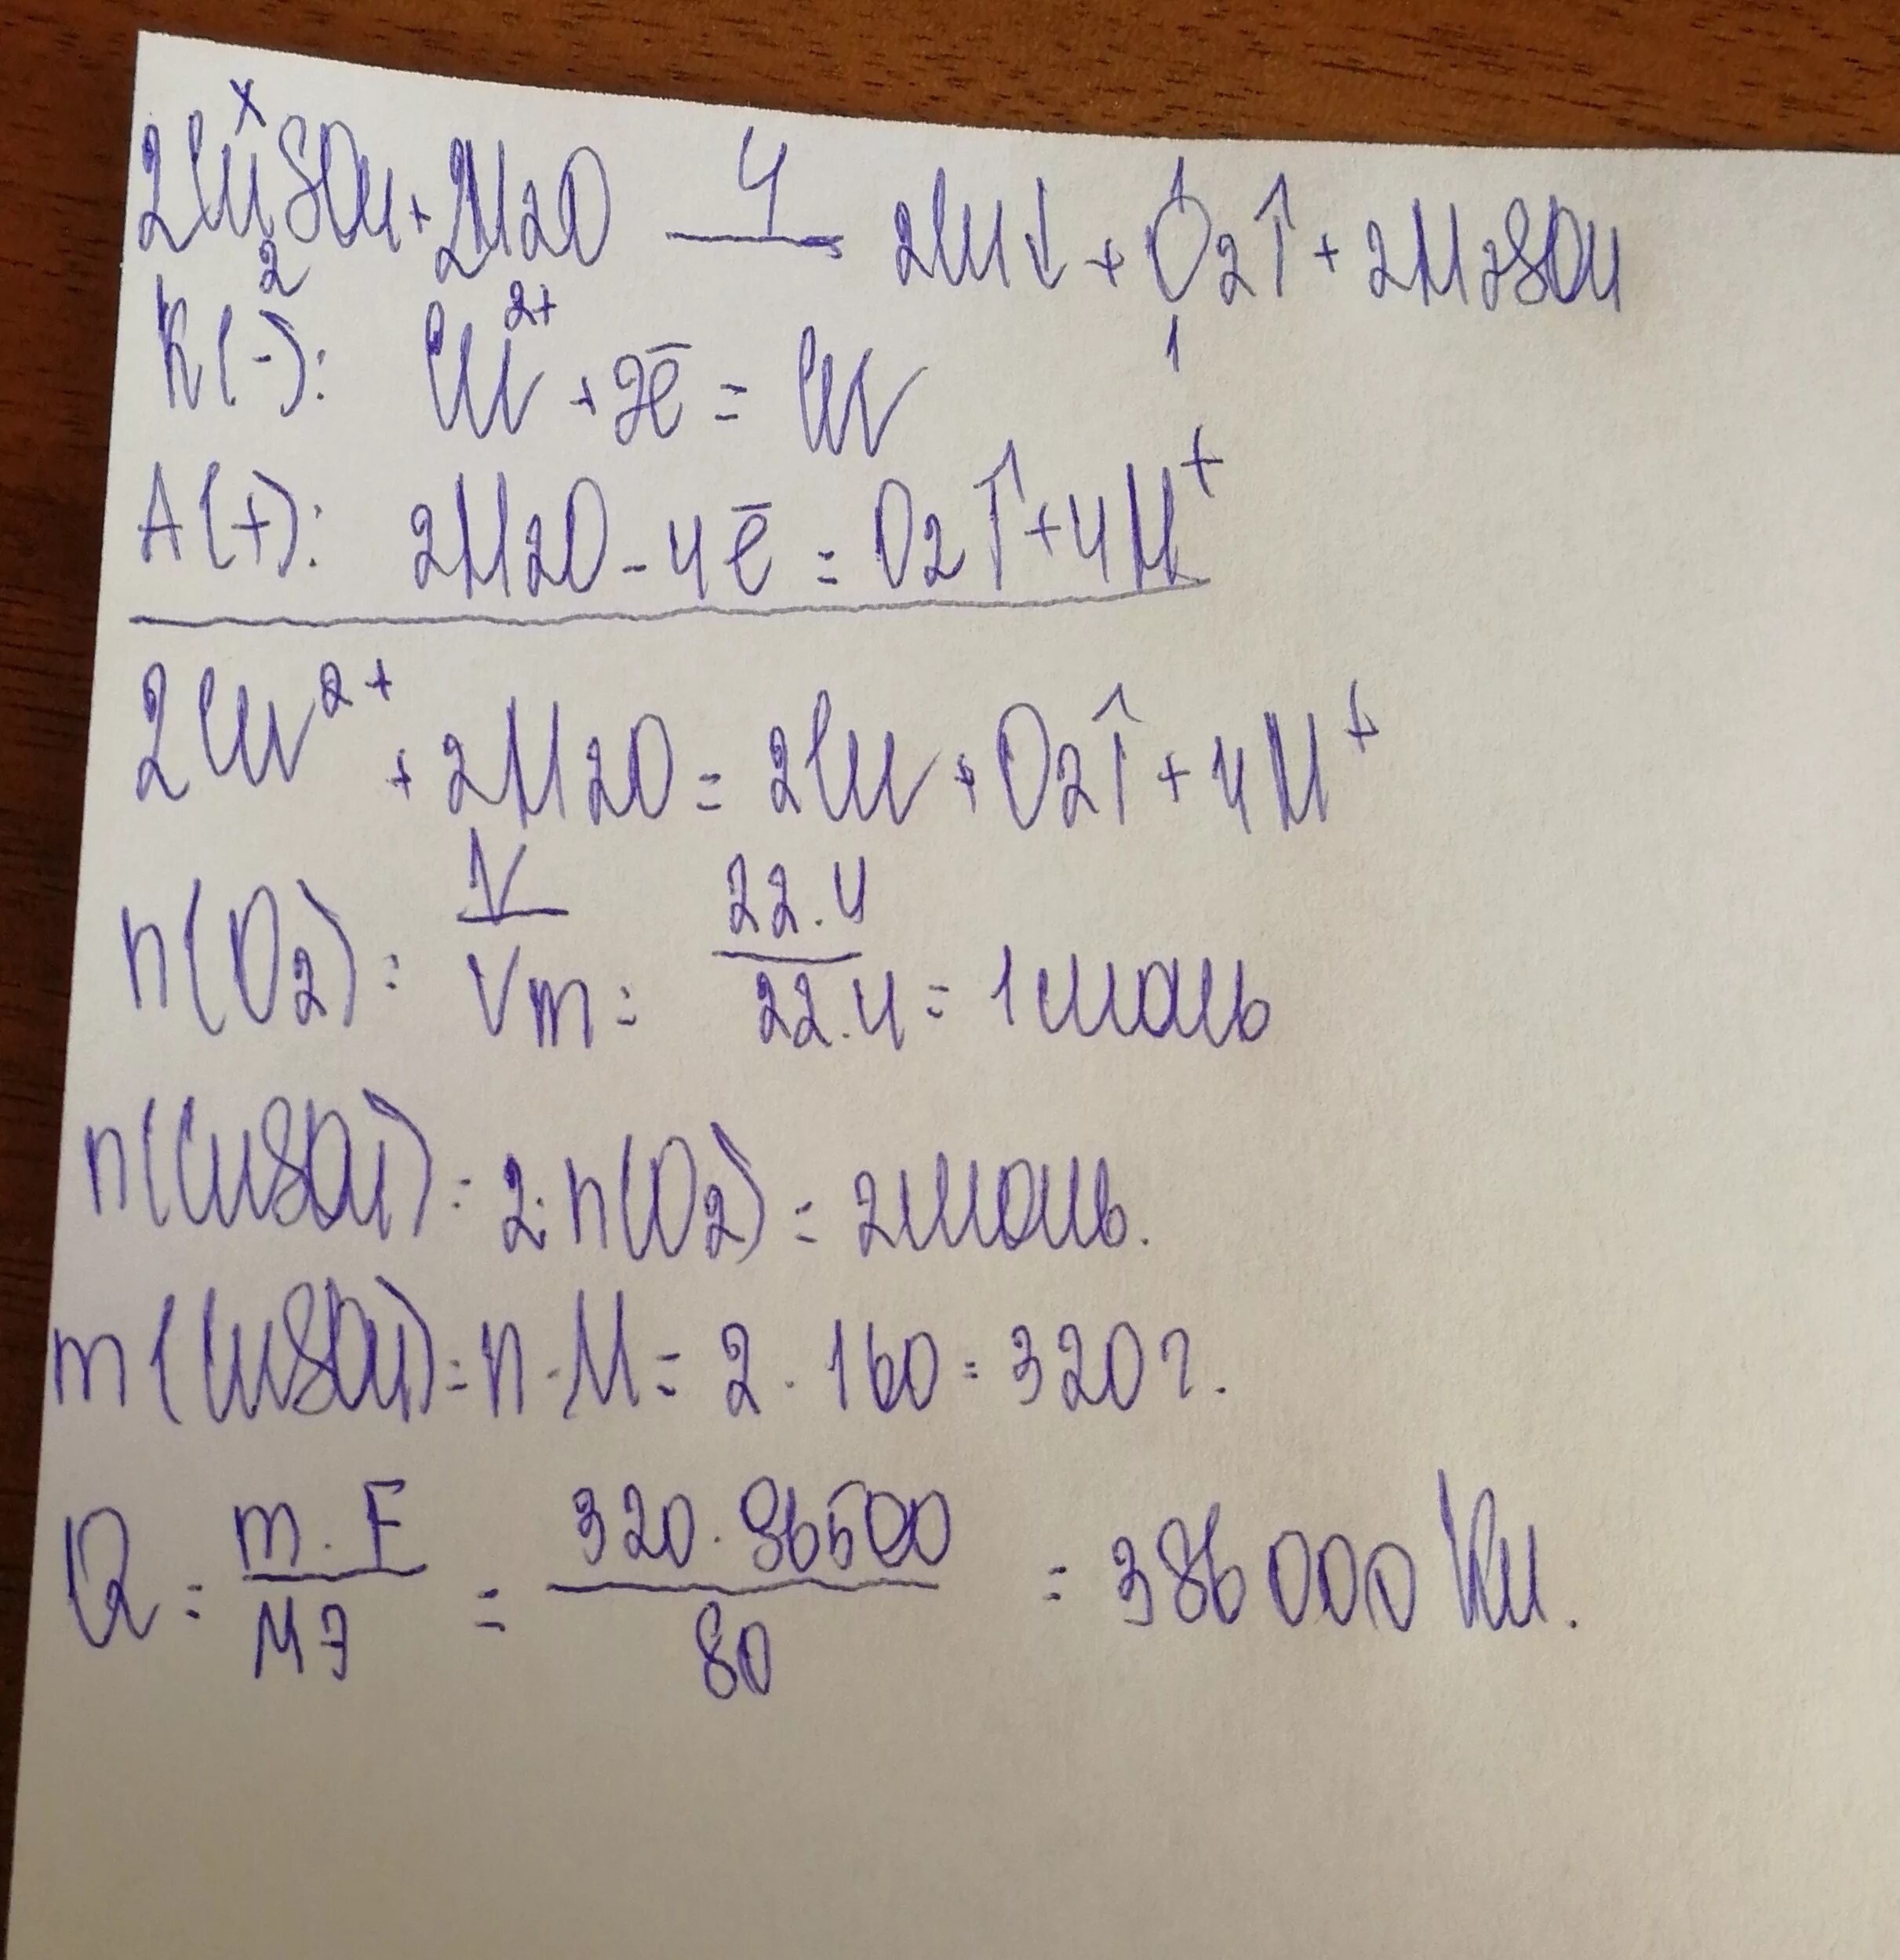 x 1
2CuSO4 + 2H2O —4→ 2Cu↓ + O2↑ + 2H2SO4
2 1
K(-): Cu²⁺ + 2ē = Cu
A(+): 2H2O - 4ē = O2↑ + 4H⁺
2Cu²⁺ + 2H2O = 2Cu + O2↑ + 4H⁺
n(O2) = V/Vm = 22.4/22.4 = 1 моль
n(CuSO4) = 2·n(O2) = 2 моль.
m(CuSO4) = n·M = 2·160 = 320 г.
Q = m·F/MЭ = 320·96500/80 = 386000 Кл.